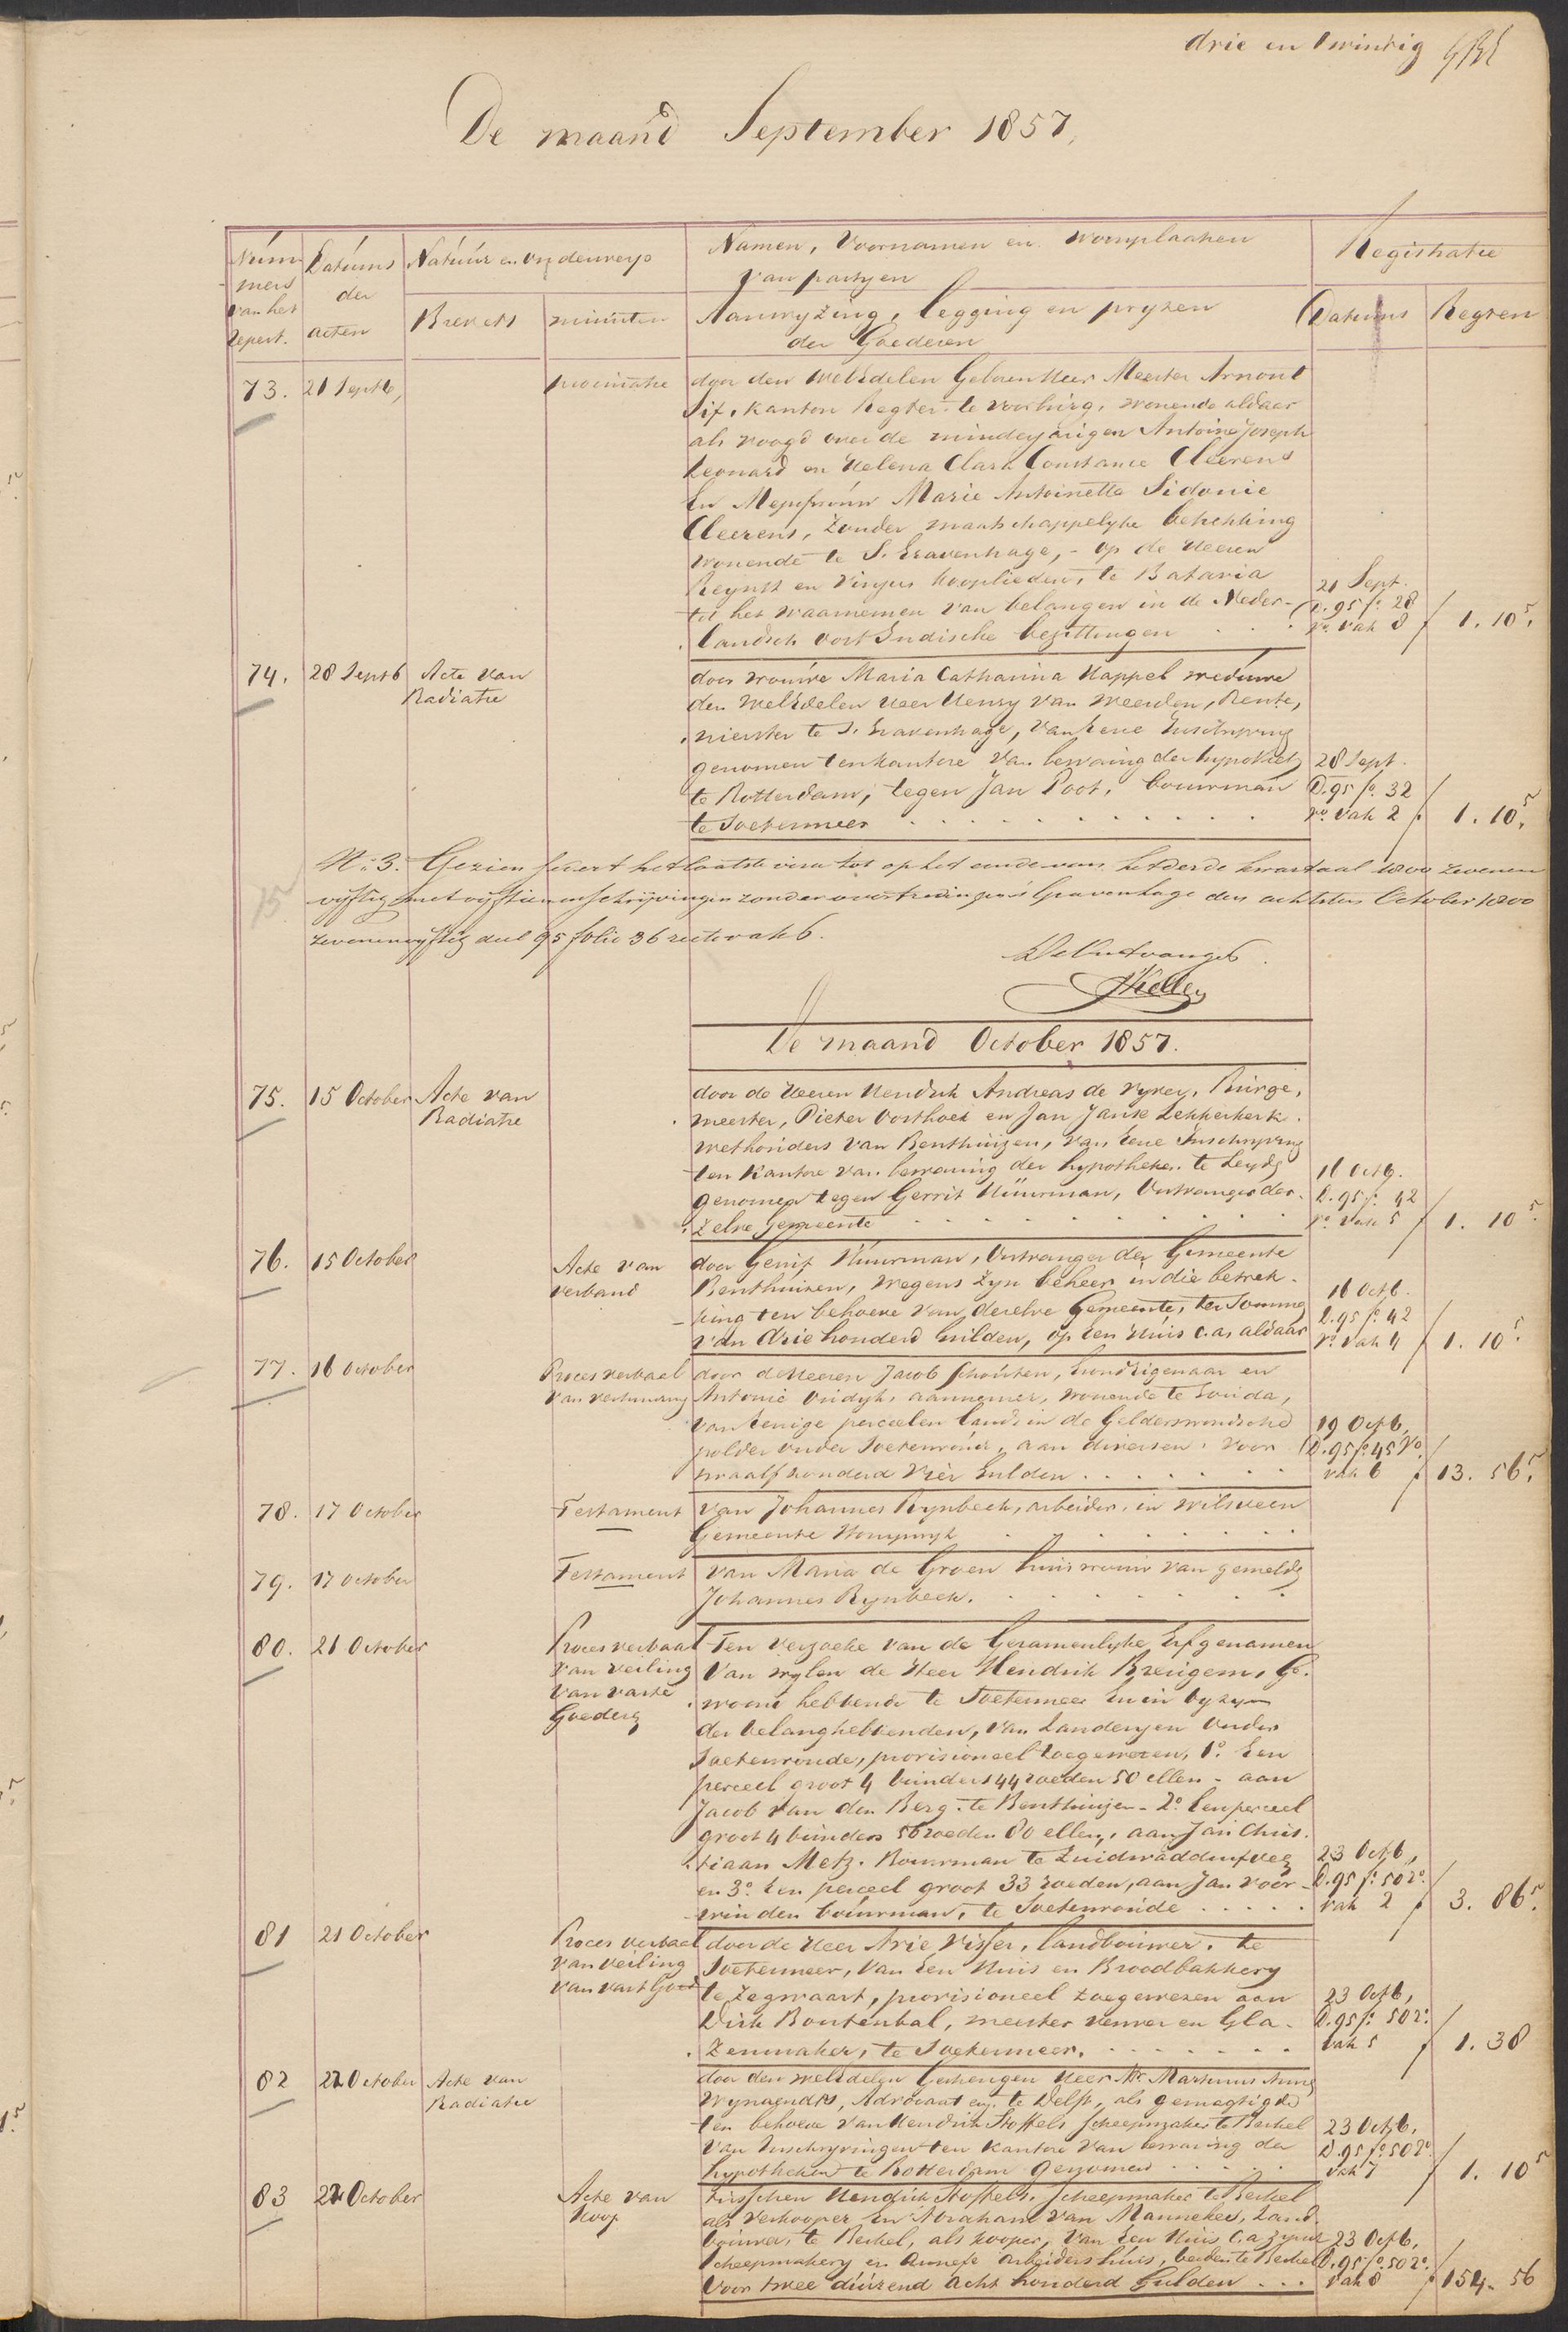 drie en twintig
De maand September 1857.
Num
mers
van het
Repert.
Datums
der
acten
Natuur en
Brevets
minuten
Namen, Voornamen en woonplaatsen
van partijen
Aanwyzing, legging en pryzen
der Goederen
Registratie
Datums
Regten
73. 21 Septb,
procuratie
door den WelEdelen Geboren Heer Meester Arnout
kanton Regter te Voorburg, wonende aldaar
als voogd over de minderjarigen Antoine Joseph
Leonard en Helena Clara Constance Cleerens
En Mejufvrouw Marie Antoinette Sidonie
Cleerens, zonder maatschappelyke betrekking
wonende te S. Gravenhage, - op de Heeren
Reynst en Vinju kooplieden, te Batavia
tot het waarnemen van belangen in de Neder-
landsch Oost Indische bezittingen
21 Sept.
D. 95 fo. 28
ro. vak 8 f 1. 10 5.
74. 28 Septb Acte van
Radiatie
door vrouwe Maria Catharina Happel weduwe
den WelEdelen Heer Henry van Weerden, Rente,
nierster te S. Gravenhage, van Eene Inschryving
genomen ten kantore van bewaring der hypotheken
te Rotterdam, tegen Jan Poot, bouwman
te Soetermeer
28 Sept.
D. 95 fo. 32
vo. vak 2 f 1. 10 5.
No. 3. Gezien sedert het laatste visa tot op het einde van het derde kwartaal 1800 zevenen
vyftig met vyftien inschryvingen zonder overtredingen 's Gravenhage den achtsten October 1800
zevenenvyftig deel 95 folio 36 recto vak 6.
De Ontvanger.
De maand October 1857.
75. 15 October Acte van
Radiatie
door de Heeren Hendrik Andreas de Vyver, Burge,
meester, Pieter Oosthoek en Jan Janse Lekkerkerk.
wethouders van Benthuizen, van Eene Inschryving
ten Kantore van bewaring der hypotheken te Leyden
genomen tegen Gerrit Huurman, Ontvanger der-
zelve gemeente
16 Octb.
D. 95 fo. 42
ro. vak 5 f 1. 10 5.
76. 15 October
Acte van
verband
door Gerrit Huurman, Ontvanger der Gemeente
Benthuizen, wegens zyn beheer in die betrek-
king ten behoeve van dezelve Gemeente, ter Somme
van drie honderd Gulden, op een Huis c.a. aldaar
16 Octb.
D. 95 fo. 42
ro. vak 4 f 1. 10 5.
77. 16 October
Proces verbaal
van verhuring
door de Heeren Jacob Schouten, Grondeigenaar en
Antonie Ouidyk, aannemer, wonende te Gouda,
van Eenige perceelen lands in de Gelderswoudsche
polder onder Soetermeer, aan diversen, voor
twaalfhonderd Vier Gulden
19 Octb,
D. 95 fo. 45 Vo.
vak 6 f 13. 56 5.
78. 17 October
Testament
van Johannes Rynbeek, arbeider, in Wilsveen
Gemeente Stompwyk
79. 17 October
Testament
van Maria de Groen huisvrouw van gemelde
Johannes Rynbeek.
80. 21 October
Proces verbaal
van veiling
van vaste
Goederen
Ten verzoeke van de Gezamenlyke Erfgenamen
van wylen de Heer Hendrik Breugem, Ge.
woond hebbende te Soetermeer En in byzyn
der belanghebbenden, van Landeryen onder
Soeterwoude, provisioneel toegewezen, 1o. Een
perceel groot 4 bunders 44 roeden 50 ellen - aan
Jacob van den Berg te Benthuizen - 2o. Een perceel
groot 4 bunders 56 roeden 80 ellen, aan Jan Chris.
tiaan Metz. Bouwman te Zuidwaddinxveen
en 3o. Een perceel groot 33 roeden, aan Jan Voor-
winden bouwman, te Soeterwoude
23 Octb,
D. 95 fo. 50 Ro.
vak 2 f 3. 86 5.
81 21 October
Proces verbaal
van veiling
van vast Goed
door de Heer Arie Visser, landbouwer, te
Soetermeer, van Een Huis en Broodbakkery
te Zegwaart, provisioneel toegewezen aan
Dirk Boutenbal, meester verwer en Gla-
zenmaker, te Soetermeer.
23 Octb,
D. 95 fo. 50 Ro.
vak 5 f 1. 38
82 22 October Acte van
Radiatie
door den welEdelen Gestrengen Heer Mr. Martinus
Wynaendts, Advocaat enz. te Delft, als gemagtigde
ten behoeve van Hendrik Stoffels scheepmaker te Berkel
van Inschryvingen ten kantore van bewaring der
hypotheken te Rotterdam genomen
23 Octb,
D. 95 fo. 50 Ro.
vak 7 f 1. 10 5
83 22 October
Acte van
koop
tusschen Hendrik Stoffels, scheepmaker te Berkel
als verkooper En Abraham van Mannekes, Land.
bouwer te Berkel, als kooper, van Een Huis c.a. zynde
Scheepmakery en annexe arbeiders huis, beiden te Berkel
voor twee duizend acht honderd Gulden
23 Octb,
D. 95 fo. 50 Ro.
vak 8 f 154. 56